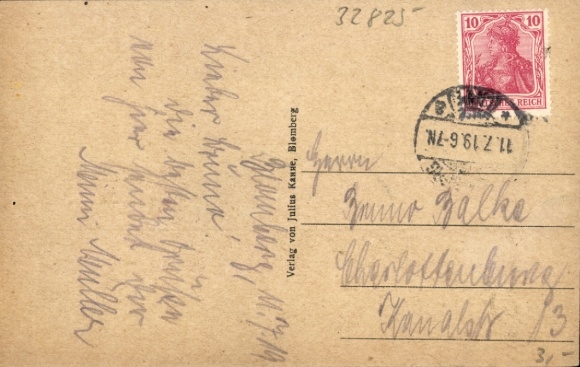 32825
10 10
DEUTSCHES REICH
11.7.19.6-7N.
Verlag von Julius Kanne, Blomberg
Blomberg, 11.7.19
Lieber Bruno!
Die besten Grüße
von hier sendet
Müller
Herrn
Benno Balke
Charlottenburg
Kanalstr 13
3,-